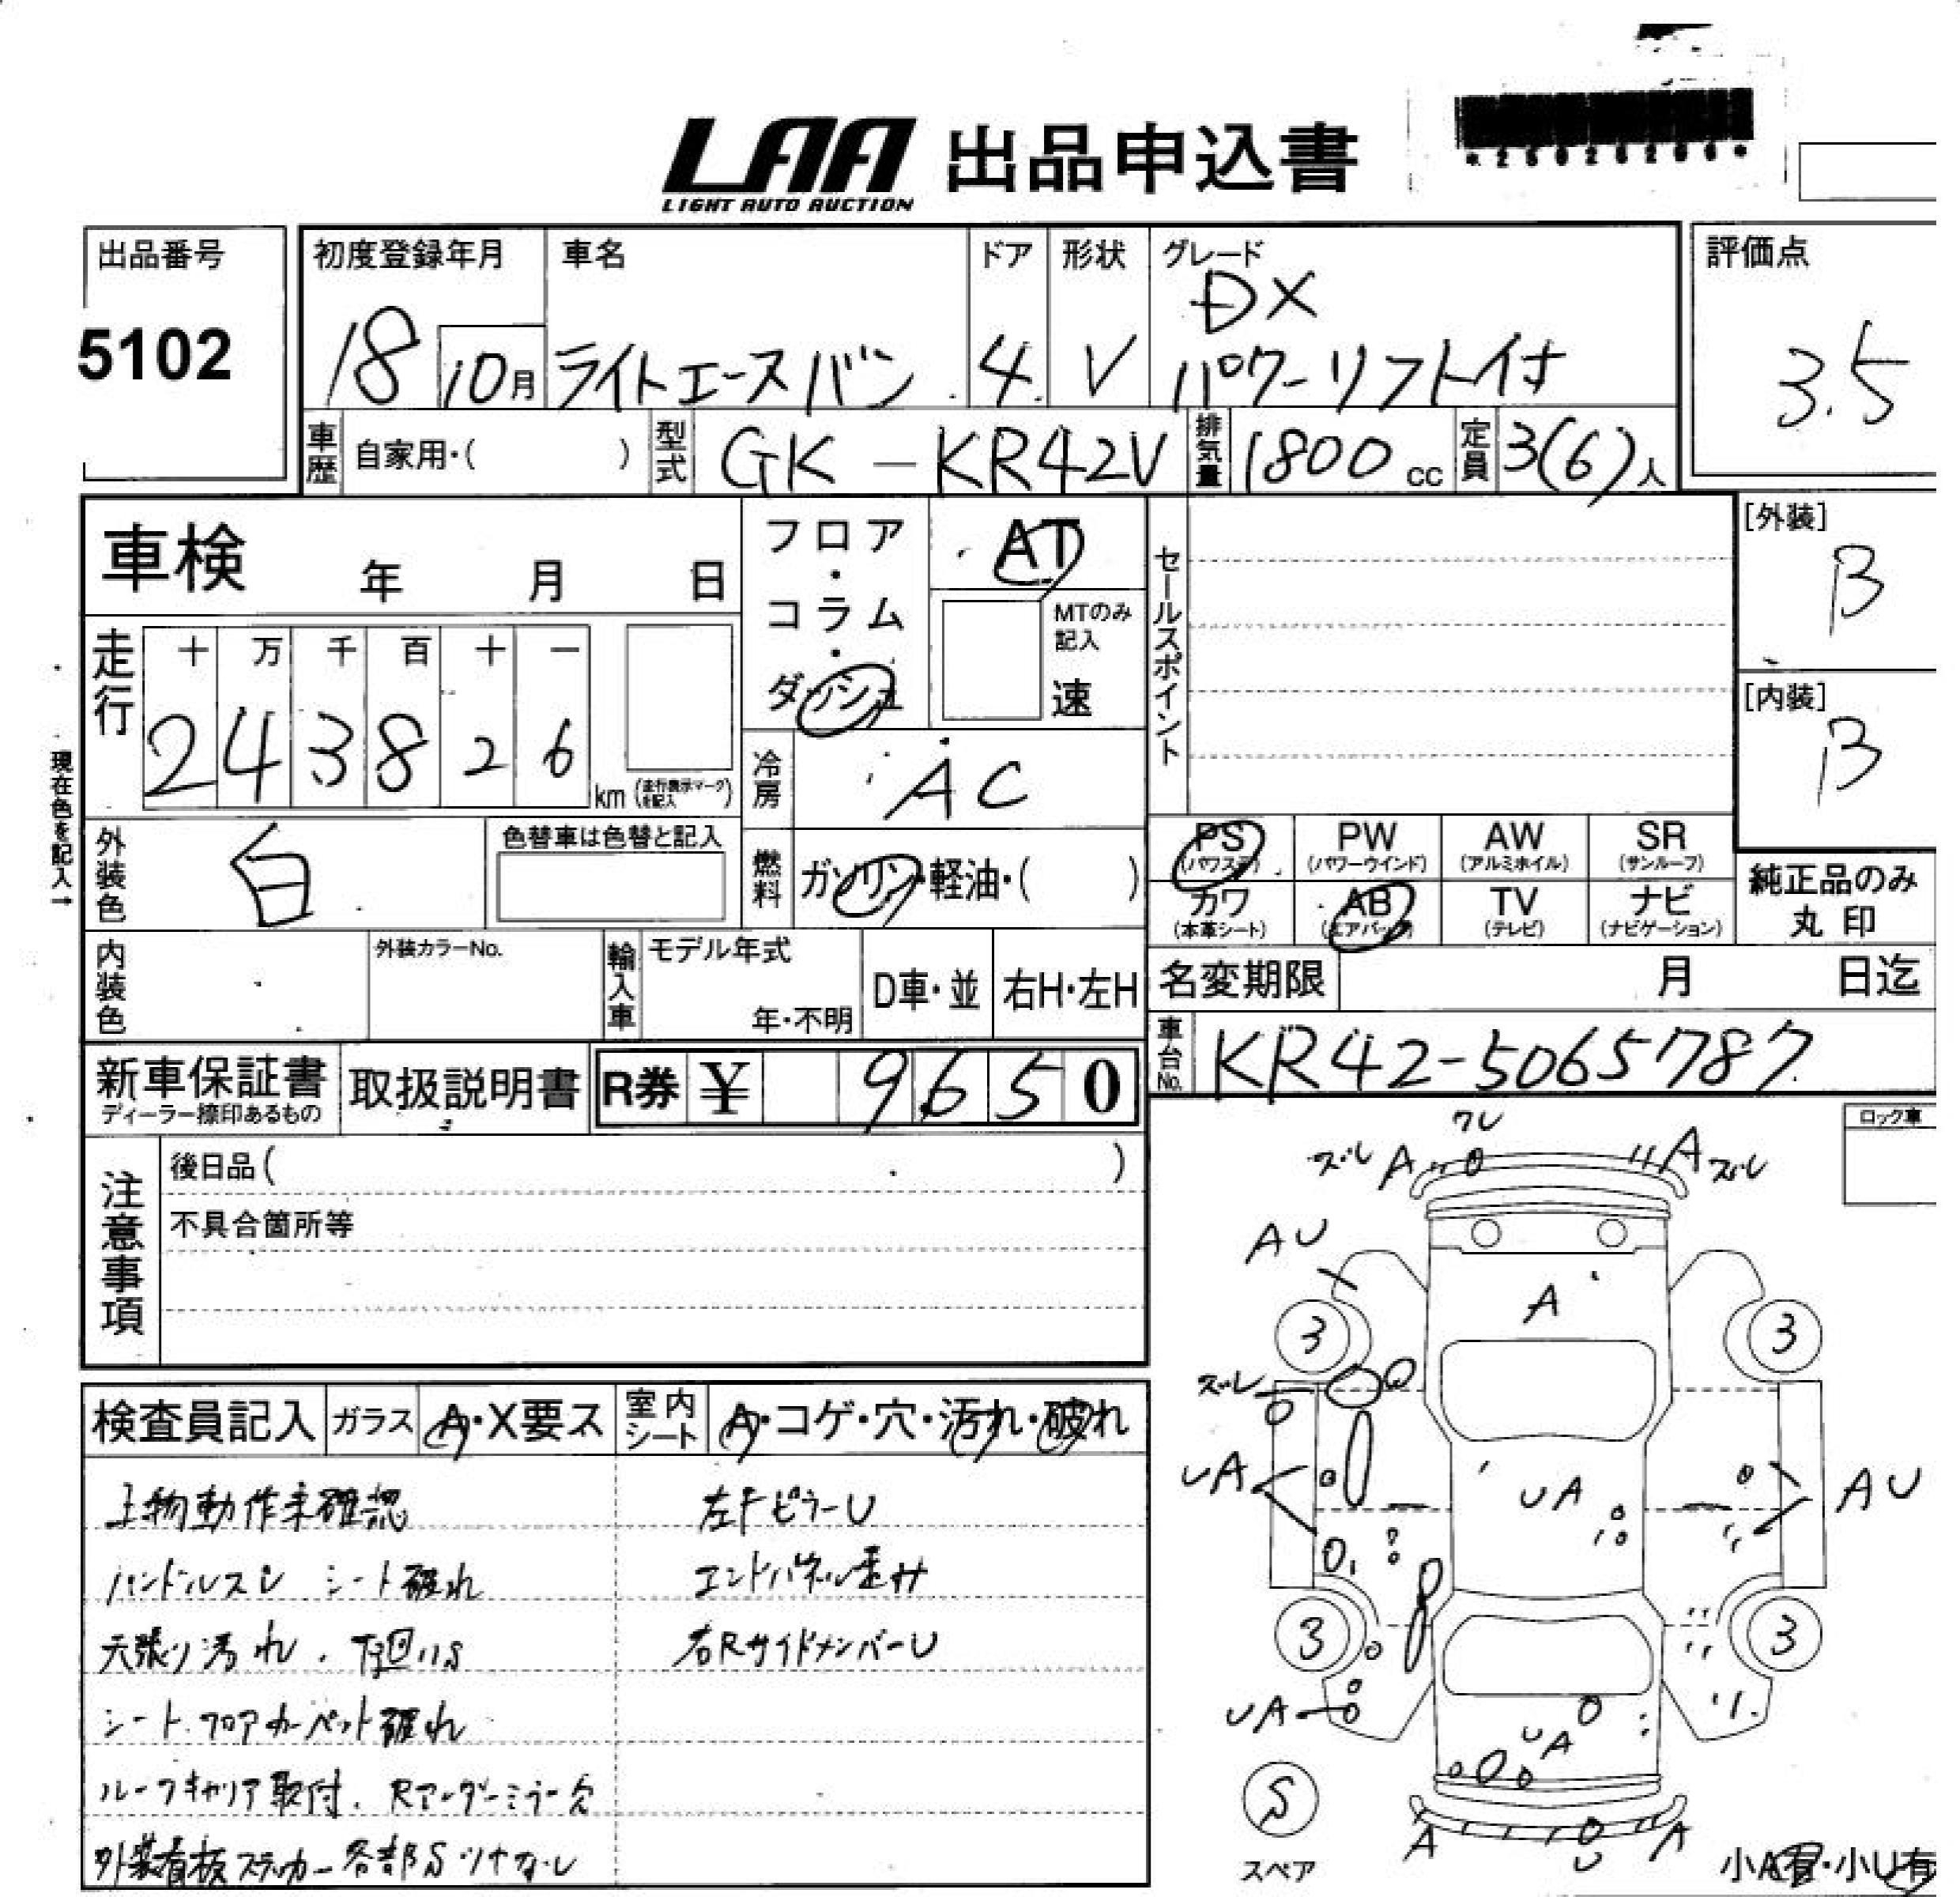 LAA 出品申込書
LIGHT AUTO AUCTION
*25026266*
出品番号
5102
初度登録年月
18 10月
車名
ライトエースバン
ドア
4
形状
V
グレード
DX
パワーリフト付
評価点
3.5
車歴 自家用・( )
型式 GK-KR42V
排気量 1800cc
定員 3(6)人
車検 年 月 日
フロア・コラム・ダッシュ
AT
MTのみ記入
速
セールスポイント
[外装]
B
[内装]
B
走行
十 万 千 百 十 一
2 4 3 8 2 6 km (走行表示マークを記入)
現在色を記入→
冷房 AC
外装色 白
色替車は色替と記入
燃料 ガソリン・軽油・( )
PS (パワステ)
PW (パワーウインド)
AW (アルミホイル)
SR (サンルーフ)
カワ (本革シート)
AB (エアバック)
TV (テレビ)
ナビ (ナビゲーション)
純正品のみ
丸印
内装色
外装カラーNo.
輸入車
モデル年式
年・不明
D車・並
右H・左H
名変期限 月 日迄
車台No. KR42-5065787
新車保証書
ディーラー捺印あるもの
取扱説明書
R券 ¥ 9650
注意事項
後日品( )
不具合箇所等
ロック車
検査員記入
ガラス A・X要ス
室内シート A・コゲ・穴・汚れ・破れ
上物動作未確認
ハンドルスレ シート破れ
天張り汚れ、下回りS
シート、フロアカーペット破れ
ルーフキャリア取付、Rアンダーミラー欠
外装看板ステッカー 各部S ツナなし
左FピラーU
エンドパネル歪み
右RサイドメンバーU
ワレ
ズレ A
A ズレ
AU
A
3
3
ズレ
UA
UA
AU
3
3
UA
UA
S
スペア
A
U
A
小A有・小U有